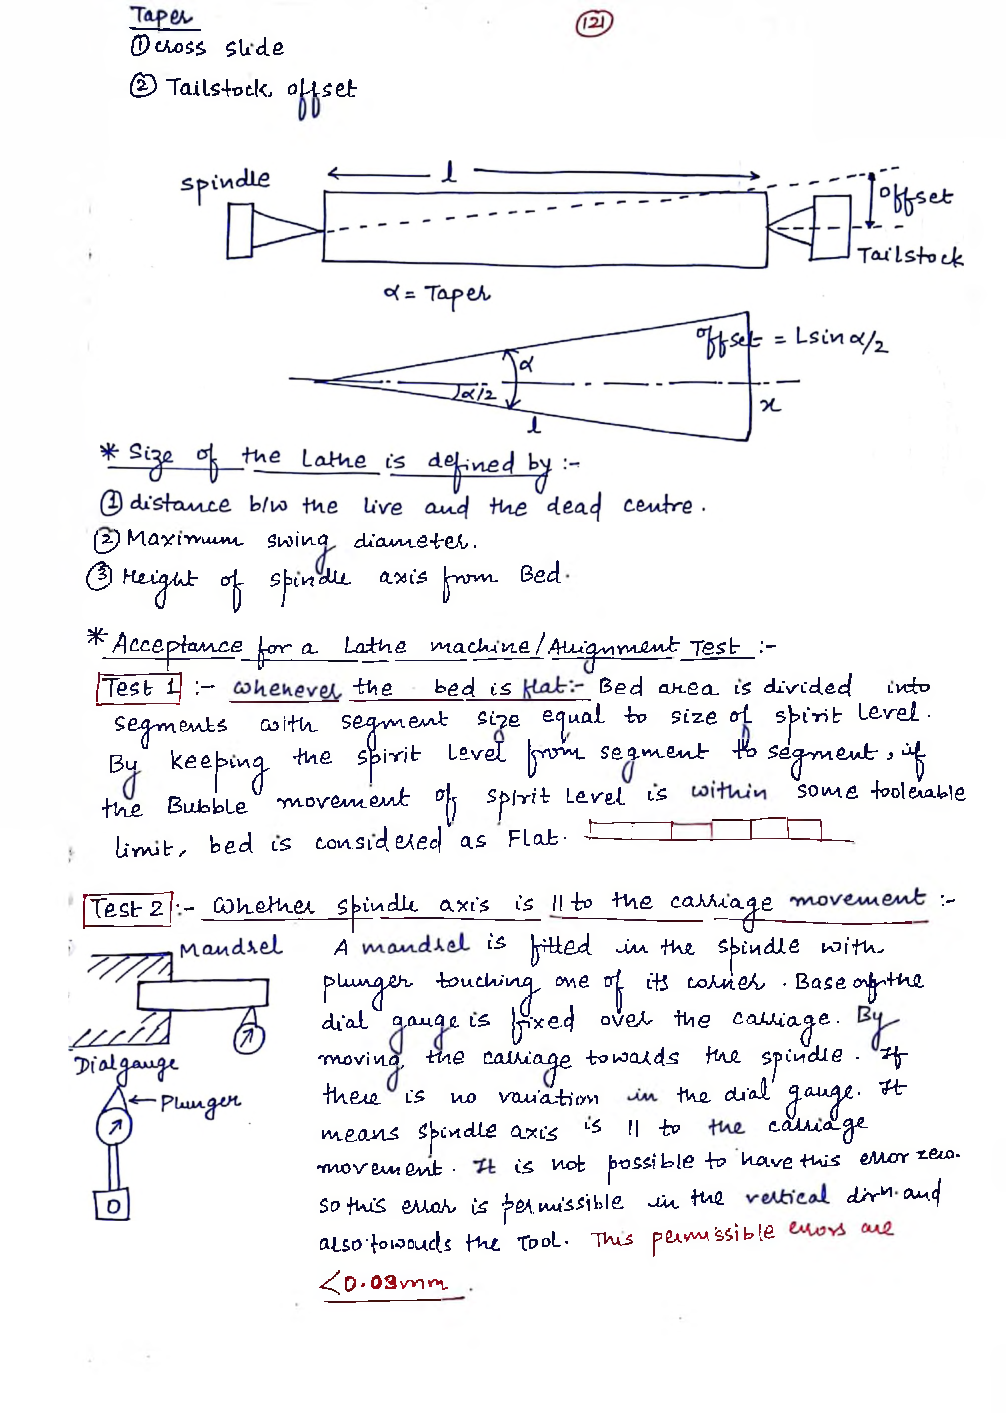 Taper
121
① cross slide
② Tailstock offset
spindle
l
offset
Tailstock
α = Taper
offset = L sin α/2
α
α/2
x
l
* Size of the Lathe is defined by :-
① distance b/w the live and the dead centre.
② Maximum swing diameter.
③ Height of spindle axis from Bed.
* Acceptance for a Lathe machine / Alignment Test :-
Test 1 :- whenever the bed is flat:- Bed area is divided into
segments with segment size equal to size of spirit Level.
By keeping the spirit Level from segment to segment, if
the Bubble movement of spirit Level is within some toolerable
limit, bed is considered as Flat.
Test 2 :- Whether spindle axis is || to the carriage movement :-
Mandrel
Dial gauge
Plunger
A mandrel is fitted in the spindle with
plunger touching one of its corner. Base of the
dial gauge is fixed over the carriage. By
moving the carriage towards the spindle. If
there is no variation in the dial gauge. It
means spindle axis is || to the carriage
movement. It is not possible to have this error zero.
so this error is permissible in the vertical dirn. and
also towards the Tool. This permissible errors are
<0.03mm.